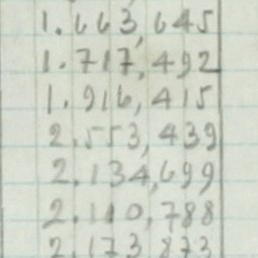 1.663,645
1.717,492
1.916,415
2.553,439
2.134,699
2.110,788
2.173,873